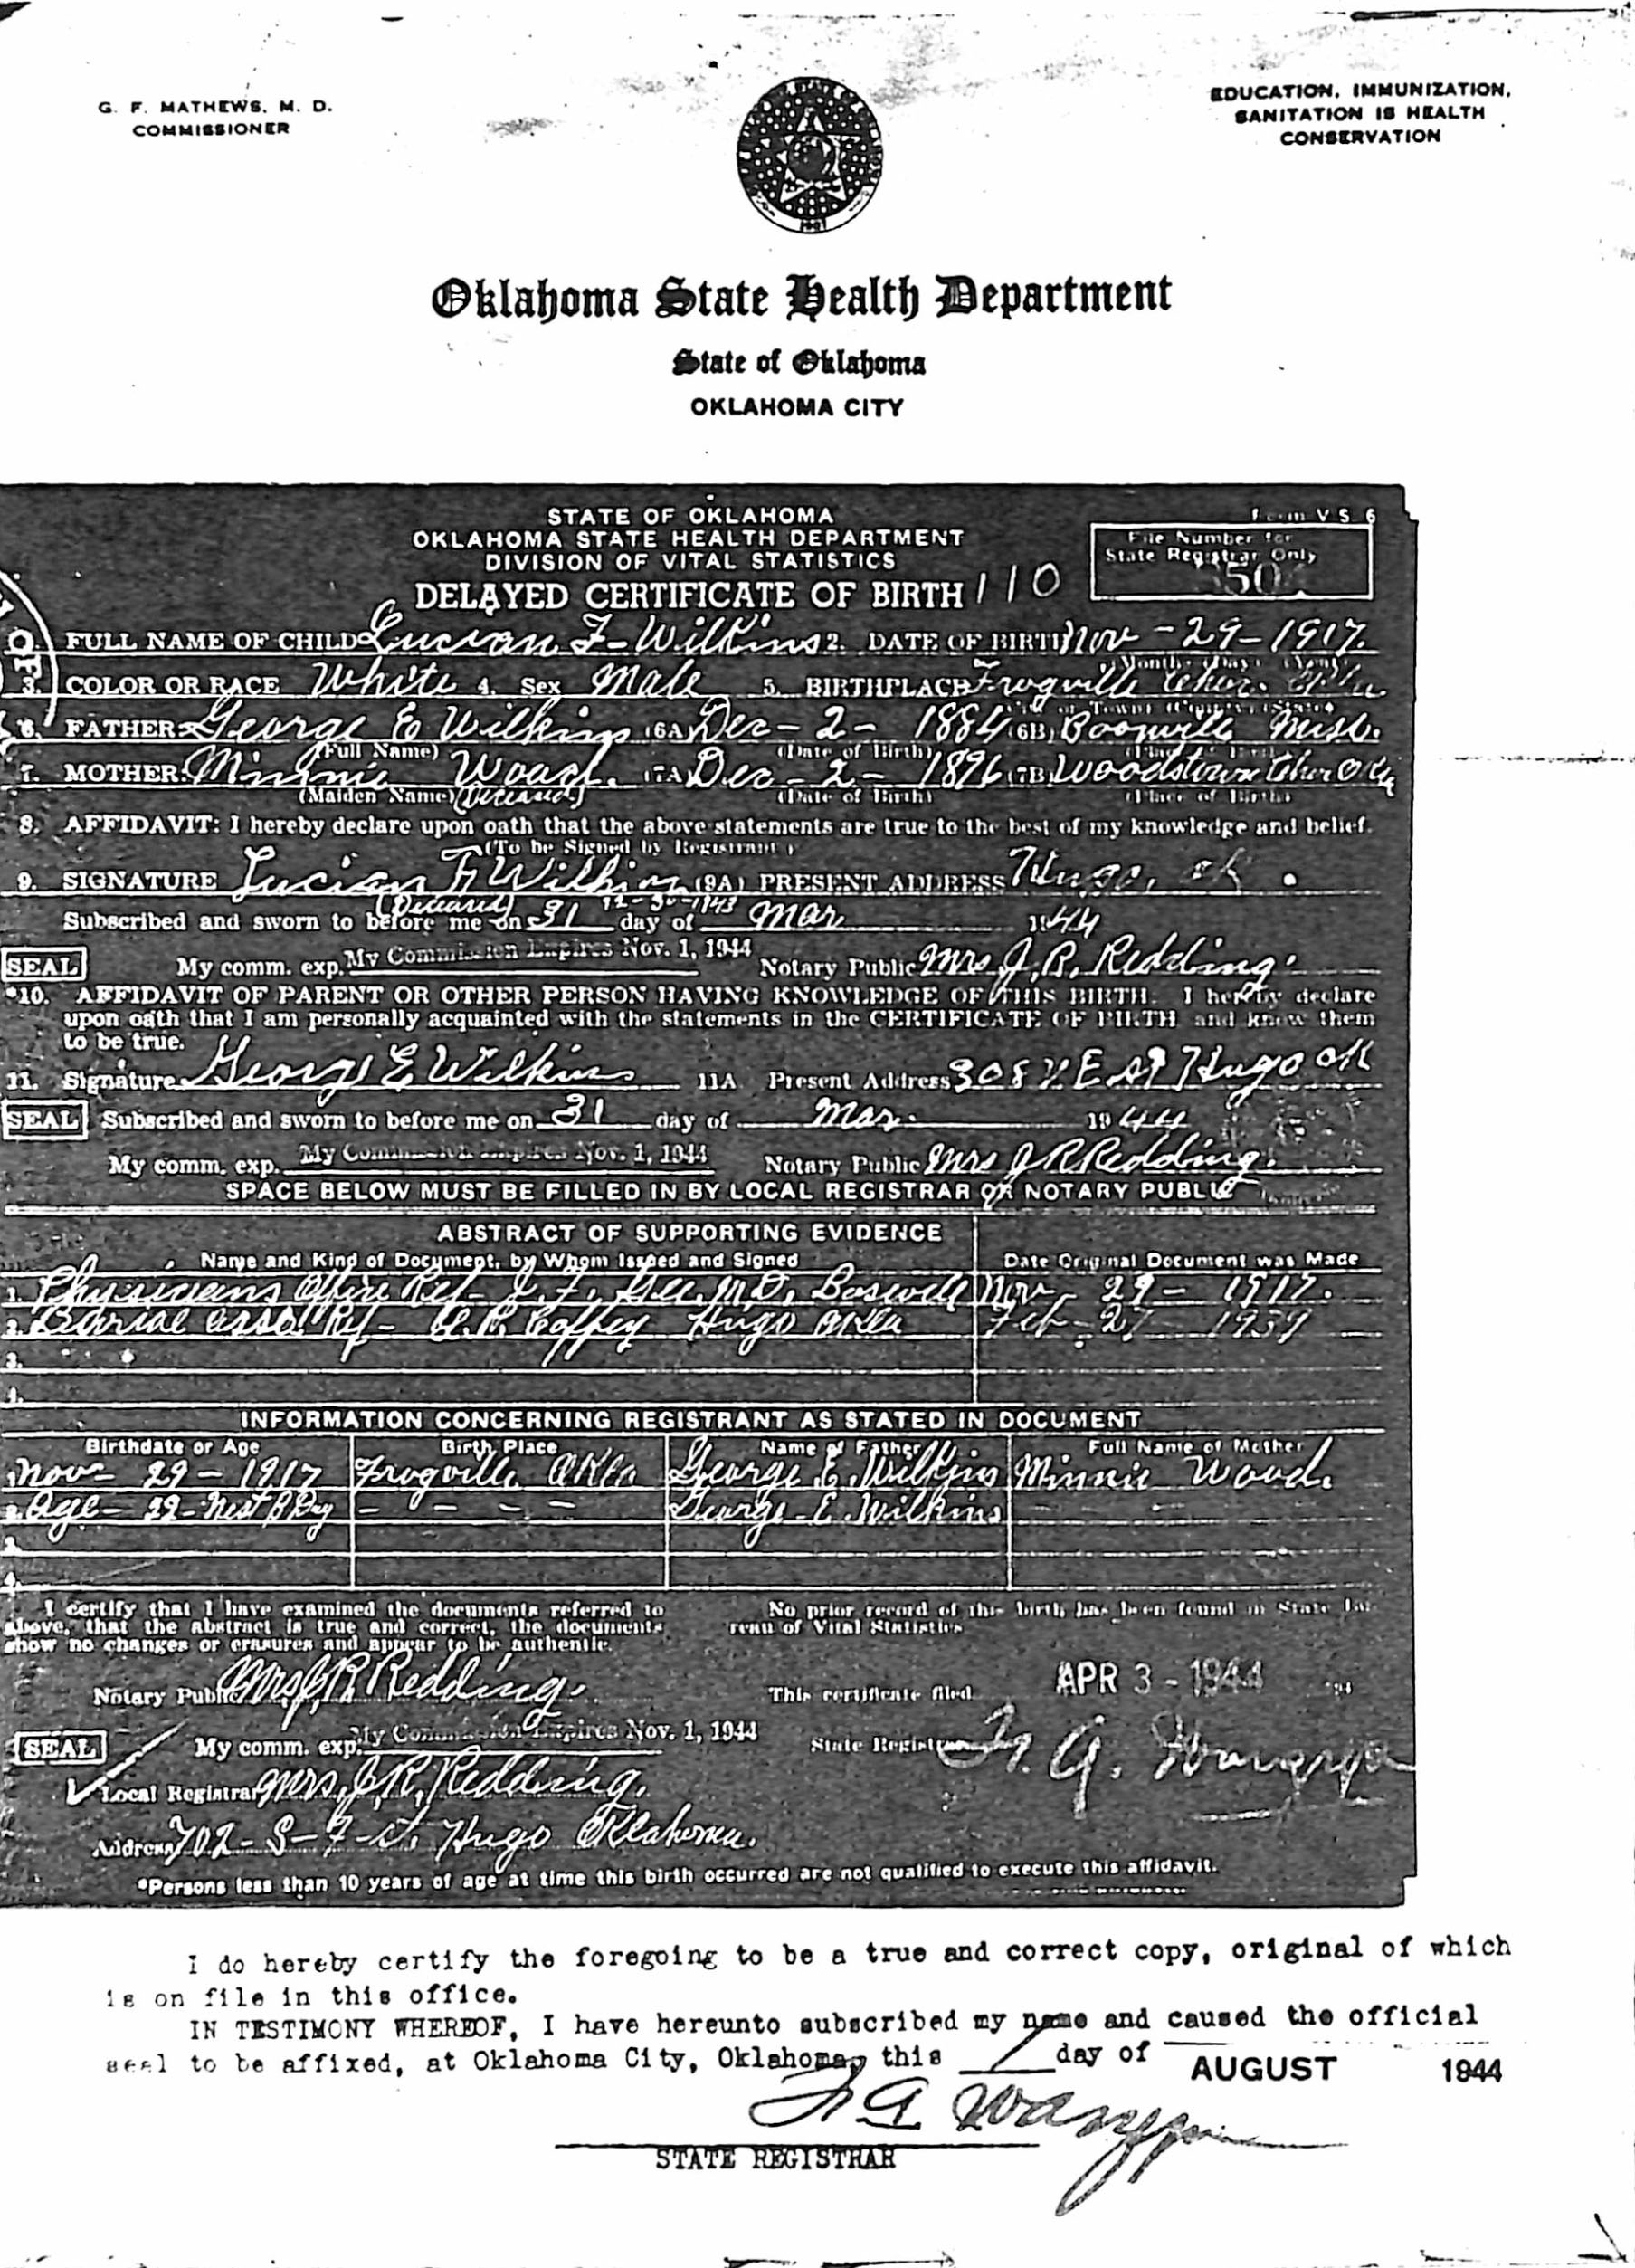 G. F. MATHEWS, M. D.
COMMISSIONER
EDUCATION, IMMUNIZATION,
SANITATION IS HEALTH
CONSERVATION
Oklahoma State Health Department
State of Oklahoma
OKLAHOMA CITY
STATE OF OKLAHOMA
OKLAHOMA STATE HEALTH DEPARTMENT
DIVISION OF VITAL STATISTICS
DELAYED CERTIFICATE OF BIRTH 110
Form V S 6
File Number for
State Registrar Only
FULL NAME OF CHILD Lucian F-Wilkins 2. DATE OF BIRTH Nov - 29 - 1917.
(Month) (Day) (Year)
3. COLOR OR RACE White 4. Sex Male 5. BIRTHPLACE Frogville Choc. Okla.
6. FATHER: George E Wilkins (6A) Dec - 2 - 1884 (6B) Boonville Miss.
(Full Name) (Date of Birth) (Place of Birth)
7. MOTHER: Minnie Wood. (7A) Dec - 2 - 1896 (7B) Woodstown Choc Okla
(Maiden Name) (Deceased) (Date of Birth) (Place of Birth)
8. AFFIDAVIT: I hereby declare upon oath that the above statements are true to the best of my knowledge and belief.
(To be Signed by Registrant)
9. SIGNATURE Lucian F. Wilkins (9A) PRESENT ADDRESS Hugo, ok.
(Deceased) 12-30-1943
Subscribed and sworn to before me on 31 day of Mar 1944
SEAL My comm. exp. My Commission Expires Nov. 1, 1944 Notary Public Mrs J. R. Redding.
*10. AFFIDAVIT OF PARENT OR OTHER PERSON HAVING KNOWLEDGE OF THIS BIRTH. I hereby declare
upon oath that I am personally acquainted with the statements in the CERTIFICATE OF BIRTH and know them
to be true.
11. Signature George E Wilkins 11A Present Address 308 1/2 E St Hugo ok
SEAL Subscribed and sworn to before me on 31 day of Mar. 1944
My comm. exp. My Commission Expires Nov. 1, 1944 Notary Public Mrs J R Redding.
SPACE BELOW MUST BE FILLED IN BY LOCAL REGISTRAR OR NOTARY PUBLIC
ABSTRACT OF SUPPORTING EVIDENCE
Name and Kind of Document, by Whom Issued and Signed Date Original Document was Made
1. Physicians Office Rec - J. F. Gee. M.D. Boswell Nov - 29 - 1917.
2. Burial Asso. - Coffey Hugo Okla Feb - 27 - 1939
3.
4.
INFORMATION CONCERNING REGISTRANT AS STATED IN DOCUMENT
Birthdate or Age Birth Place Name of Father Full Name of Mother
Nov - 29 - 1917 Frogville Okla George E. Wilkins Minnie Wood.
2. Age - 22 - Next B Day - - - - George. E. Wilkins
3.
4.
I certify that I have examined the documents referred to
above, that the abstract is true and correct, the documents
show no changes or erasures and appear to be authentic.
No prior record of this birth has been found in State Bu-
reau of Vital Statistics
Notary Public Mrs J R Redding.
This certificate filed APR 3 - 1944 194
SEAL My comm. exp. My Commission Expires Nov. 1, 1944
State Registrar
Local Registrar Mrs. J. R. Redding.
Address 702 - S - F - St. Hugo Oklahoma.
*Persons less than 10 years of age at time this birth occurred are not qualified to execute this affidavit.
I do hereby certify the foregoing to be a true and correct copy, original of which
is on file in this office.
IN TESTIMONY WHEREOF, I have hereunto subscribed my name and caused the official
seal to be affixed, at Oklahoma City, Oklahoma, this 1 day of AUGUST 1944
STATE REGISTRAR